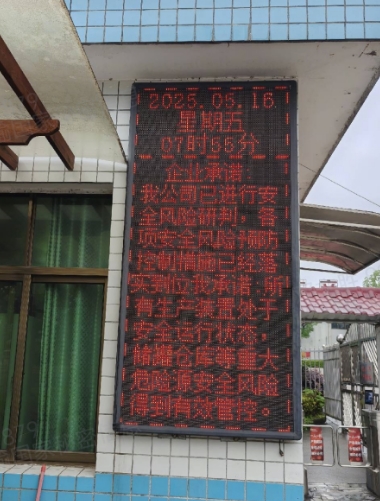 2025.05.16
星期五
07时55分
企业承诺:
我公司已进行安
全风险研判,各
项安全风险预防
控制措施已经落
实到位我承诺:所
有生产装置处于
安全运行状态,
储罐仓库等重大
危险源安全风险
得到有效管控。